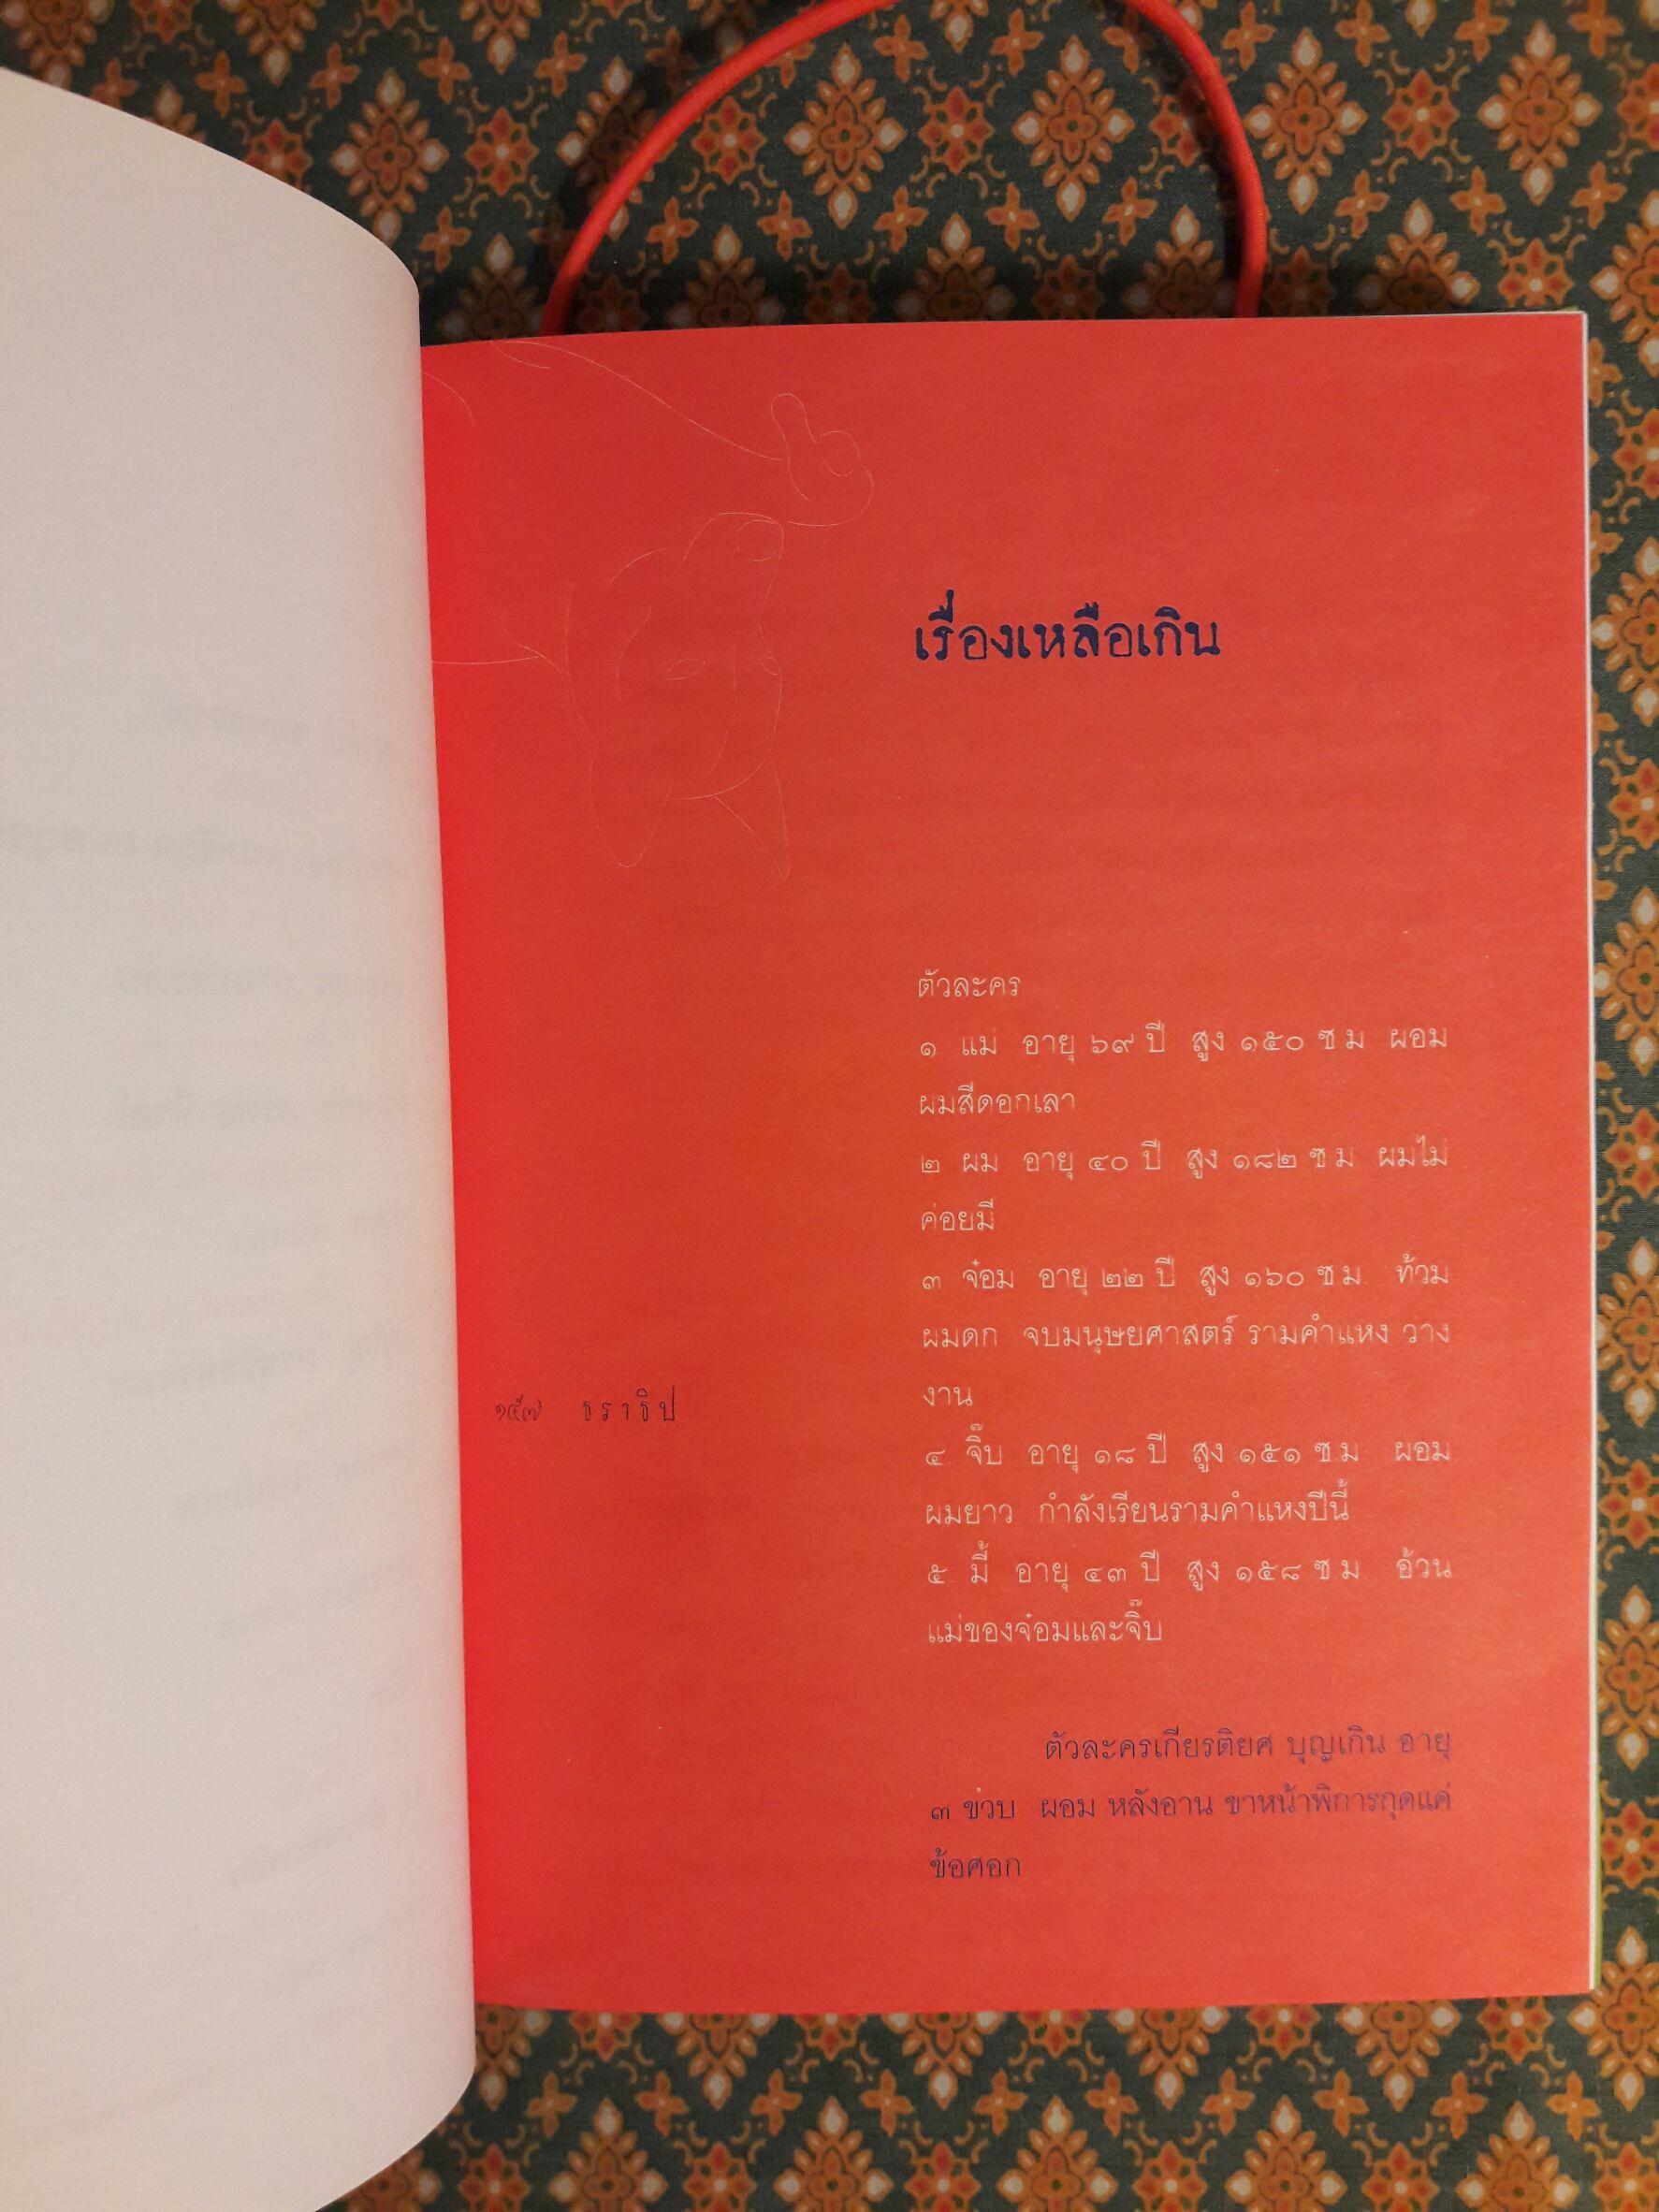 เรื่องเหลือเกิน
ตัวละคร
๑ แม่ อายุ ๖๙ ปี สูง ๑๕๐ ซ.ม ผอม
ผมสีดอกเลา
๒ ผม อายุ ๔๐ ปี สูง ๑๘๒ ซ.ม ผมไม่
ค่อยมี
๓ จ๋อม อายุ ๒๒ ปี สูง ๑๖๐ ซ.ม. ท้วม
ผมดก จบมนุษยศาสตร์ รามคำแหง ว่าง
งาน
๔ จิ๊บ อายุ ๑๘ ปี สูง ๑๕๑ ซ.ม ผอม
ผมยาว กำลังเรียนรามคำแหงปีนี้
๕. มี้ อายุ ๔๓ ปี สูง ๑๕๘ ซ.ม อ้วน
แม่ของจ๋อมและจิ๊บ
ตัวละครเกียรติยศ บุญเกิน อายุ
๓ ขวบ ผอม หลังอาน ขาหน้าพิการกุดแค่
ข้อศอก
๑๕๗ ธราธิป